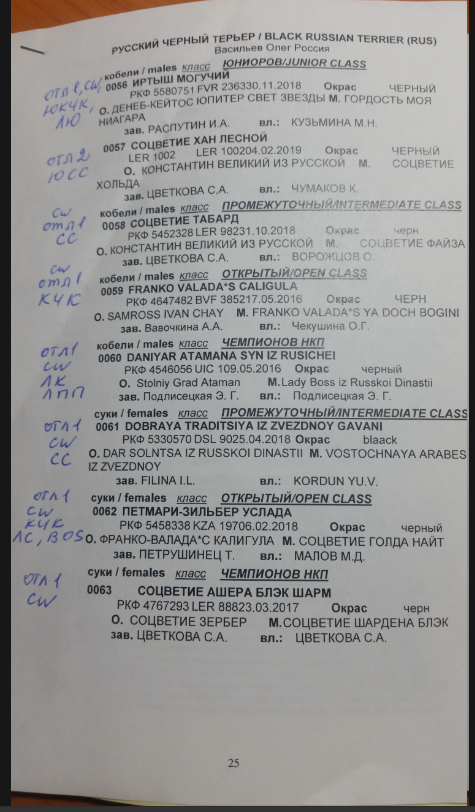 РУССКИЙ ЧЕРНЫЙ ТЕРЬЕР / BLACK RUSSIAN TERRIER (RUS)
Васильев Олег Россия
кобели / males класс ЮНИОРОВ/JUNIOR CLASS
ОТЛ 1, CW,
ЮКЧК,
ЛЮ
0056 ИРТЫШ МОГУЧИЙ
РКФ 5580751 FVR 236330.11.2018 Окрас ЧЕРНЫЙ
О. ДЕНЕБ-КЕЙТОС ЮПИТЕР СВЕТ ЗВЕЗДЫ М. ГОРДОСТЬ МОЯ
НИАГАРА
зав. РАСПУТИН И.А. вл.: КУЗЬМИНА М.Н.
ОТЛ 2
ЮСС
0057 СОЦВЕТИЕ ХАН ЛЕСНОЙ
LER 1002 LER 100204.02.2019 Окрас ЧЕРНЫЙ
О. КОНСТАНТИН ВЕЛИКИЙ ИЗ РУССКОЙ М. СОЦВЕТИЕ
ХОЛЬДА
зав. ЦВЕТКОВА С.А. вл.: ЧУМАКОВ К.
кобели / males класс ПРОМЕЖУТОЧНЫЙ/INTERMEDIATE CLASS
CW
ОТЛ 1
СС
0058 СОЦВЕТИЕ ТАБАРД
РКФ 5452328 LER 98231.10.2018 Окрас черн
О. КОНСТАНТИН ВЕЛИКИЙ ИЗ РУССКОЙ М. СОЦВЕТИЕ ФАЙЗА
зав. ЦВЕТКОВА С.А. вл.: ВОРОЖЦОВ О.
кобели / males класс ОТКРЫТЫЙ/OPEN CLASS
CW
ОТЛ 1
КЧК
0059 FRANKO VALADA*S CALIGULA
РКФ 4647482 BVF 385217.05.2016 Окрас ЧЕРН
О. SAMROSS IVAN CHAY М. FRANKO VALADA*S YA DOCH BOGINI
зав. Вавочкина А.А. вл.: Чекушина О.Г.
кобели / males класс ЧЕМПИОНОВ НКП
ОТЛ 1
CW
ЛК
ЛПП
0060 DANIYAR ATAMANA SYN IZ RUSICHEI
РКФ 4546056 UIC 109.05.2016 Окрас черный
О. Stolniy Grad Ataman М.Lady Boss iz Russkoi Dinastii
зав. Подлисецкая Э. Г. вл.: Подлисецкая Э. Г.
суки / females класс ПРОМЕЖУТОЧНЫЙ/INTERMEDIATE CLASS
ОТЛ 1
CW
СС
0061 DOBRAYA TRADITSIYA IZ ZVEZDNOY GAVANI
РКФ 5330570 DSL 9025.04.2018 Окрас blaack
О. DAR SOLNTSA IZ RUSSKOI DINASTII М. VOSTOCHNAYA ARABES
IZ ZVEZDNOY
зав. FILINA I.L. вл.: KORDUN YU.V.
суки / females класс ОТКРЫТЫЙ/OPEN CLASS
ОТЛ 1
CW
КЧК
ЛС, BOS
0062 ПЕТМАРИ-ЗИЛЬБЕР УСЛАДА
РКФ 5458338 KZA 19706.02.2018 Окрас черный
О. ФРАНКО-ВАЛАДА*С КАЛИГУЛА М. СОЦВЕТИЕ ГОЛДА НАЙТ
зав. ПЕТРУШИНЕЦ Т. вл.: МАЛОВ М.Д.
суки / females класс ЧЕМПИОНОВ НКП
ОТЛ 1
CW
0063 СОЦВЕТИЕ АШЕРА БЛЭК ШАРМ
РКФ 4767293 LER 88823.03.2017 Окрас черн
О. СОЦВЕТИЕ ЗЕРБЕР М.СОЦВЕТИЕ ШАРДЕНА БЛЭК
зав. ЦВЕТКОВА С.А. вл.: ЦВЕТКОВА С.А.
25